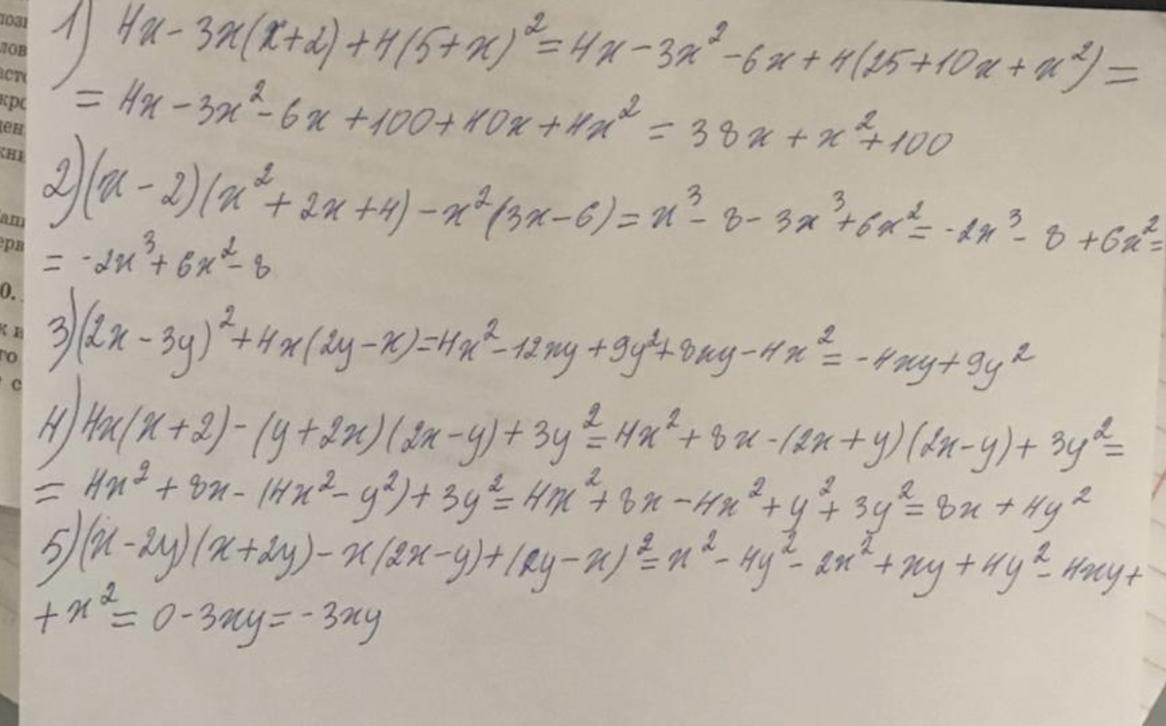 1) 4x - 3x(x+2) + 4(5+x)² = 4x - 3x² - 6x + 4(25+10x+x²) =
= 4x - 3x² - 6x + 100 + 40x + 4x² = 38x + x² + 100
2) (x - 2)(x² + 2x + 4) - x²(3x - 6) = x³ - 8 - 3x³ + 6x² = -2x³ - 8 + 6x² =
= -2x³ + 6x² - 8
3) (2x - 3y)² + 4x(2y - x) = 4x² - 12xy + 9y² + 8xy - 4x² = -4xy + 9y²
4) 4x(x+2) - (y+2x)(2x-y) + 3y² = 4x² + 8x - (2x+y)(2x-y) + 3y² =
= 4x² + 8x - (4x² - y²) + 3y² = 4x² + 8x - 4x² + y² + 3y² = 8x + 4y²
5) (x - 2y)(x+2y) - x(2x-y) + (2y-x)² = x² - 4y² - 2x² + xy + 4y² - 4xy +
+ x² = 0 - 3xy = -3xy